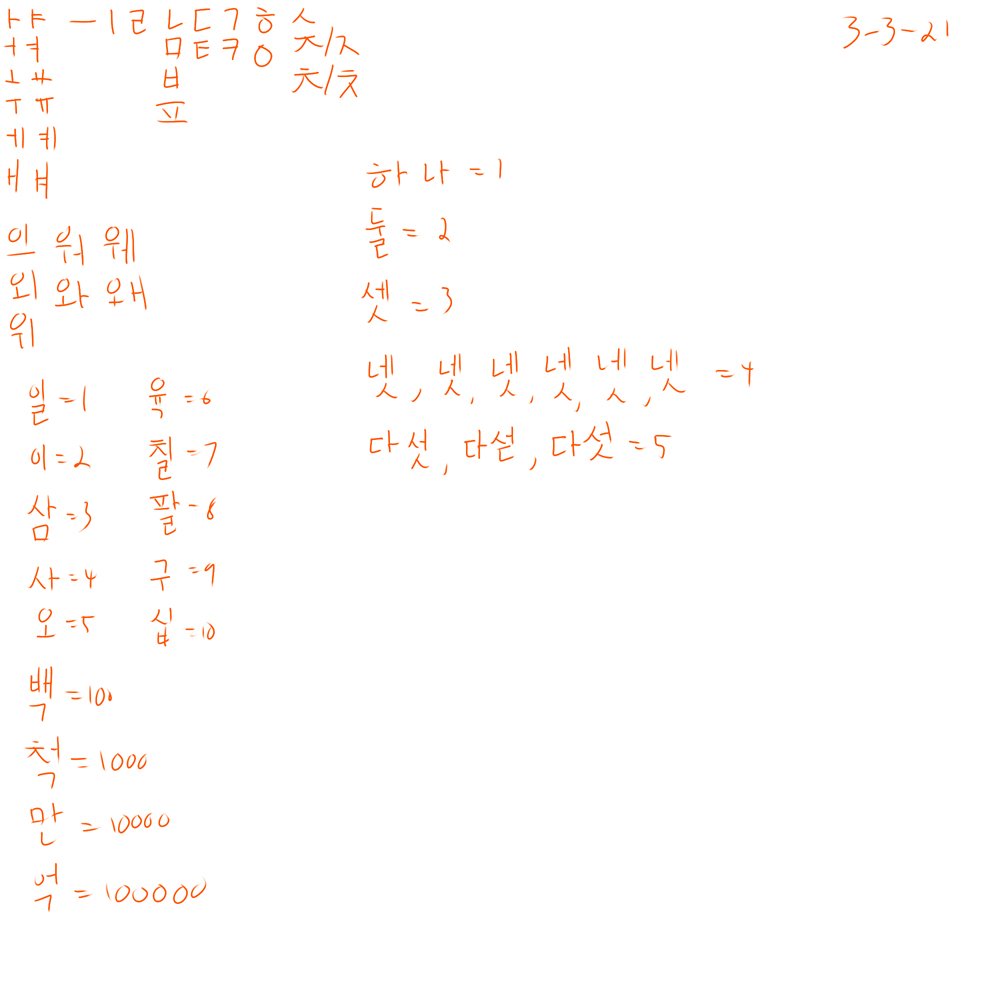 ㅏ ㅑ ㅡ ㅣ ㄹ ㄴ ㄷ ㄱ ㅎ ㅅ 3-3-21
ㅓ ㅕ ㅁ ㅌ ㅋ ㅇ ㅈ/ㅈ
ㅗ ㅛ ㅂ ㅊ/ㅊ
ㅜ ㅠ ㅍ
ㅔ ㅖ
ㅐ ㅒ
의 워 웨
외 와 왜
위
하나 = 1
둘 = 2
셋 = 3
넷, 넷, 넷, 넷, 넷, 넷 = 4
다섯, 다섣, 다섯 = 5
일 = 1 육 = 6
이 = 2 칠 = 7
삼 = 3 팔 - 8
사 = 4 구 = 9
오 = 5 십 = 10
백 = 100
척 = 1000
만 = 10000
억 = 100000